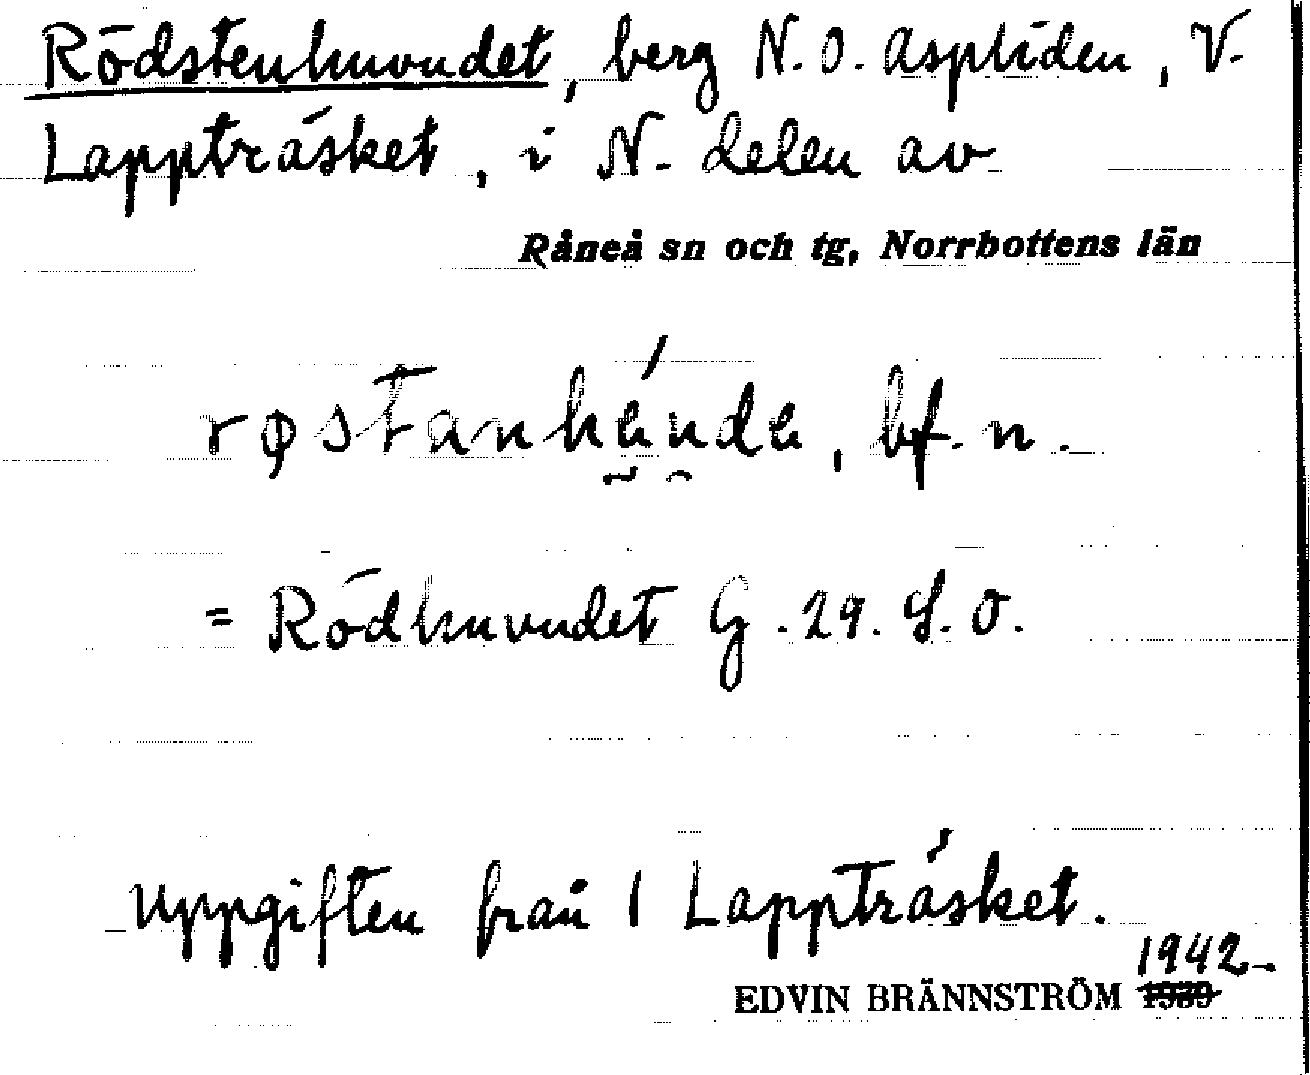 Rödstenhuvudet, berg N.O. Aspliden, V.
Lappträsket, i N. delen av
Råneå sn och tg, Norrbottens län
røstanhánda, bf. n.
= Rödhuvudet G. 29. S. O.
Uppgiften från 1 Lappträsket.
1942
EDVIN BRÄNNSTRÖM 1939